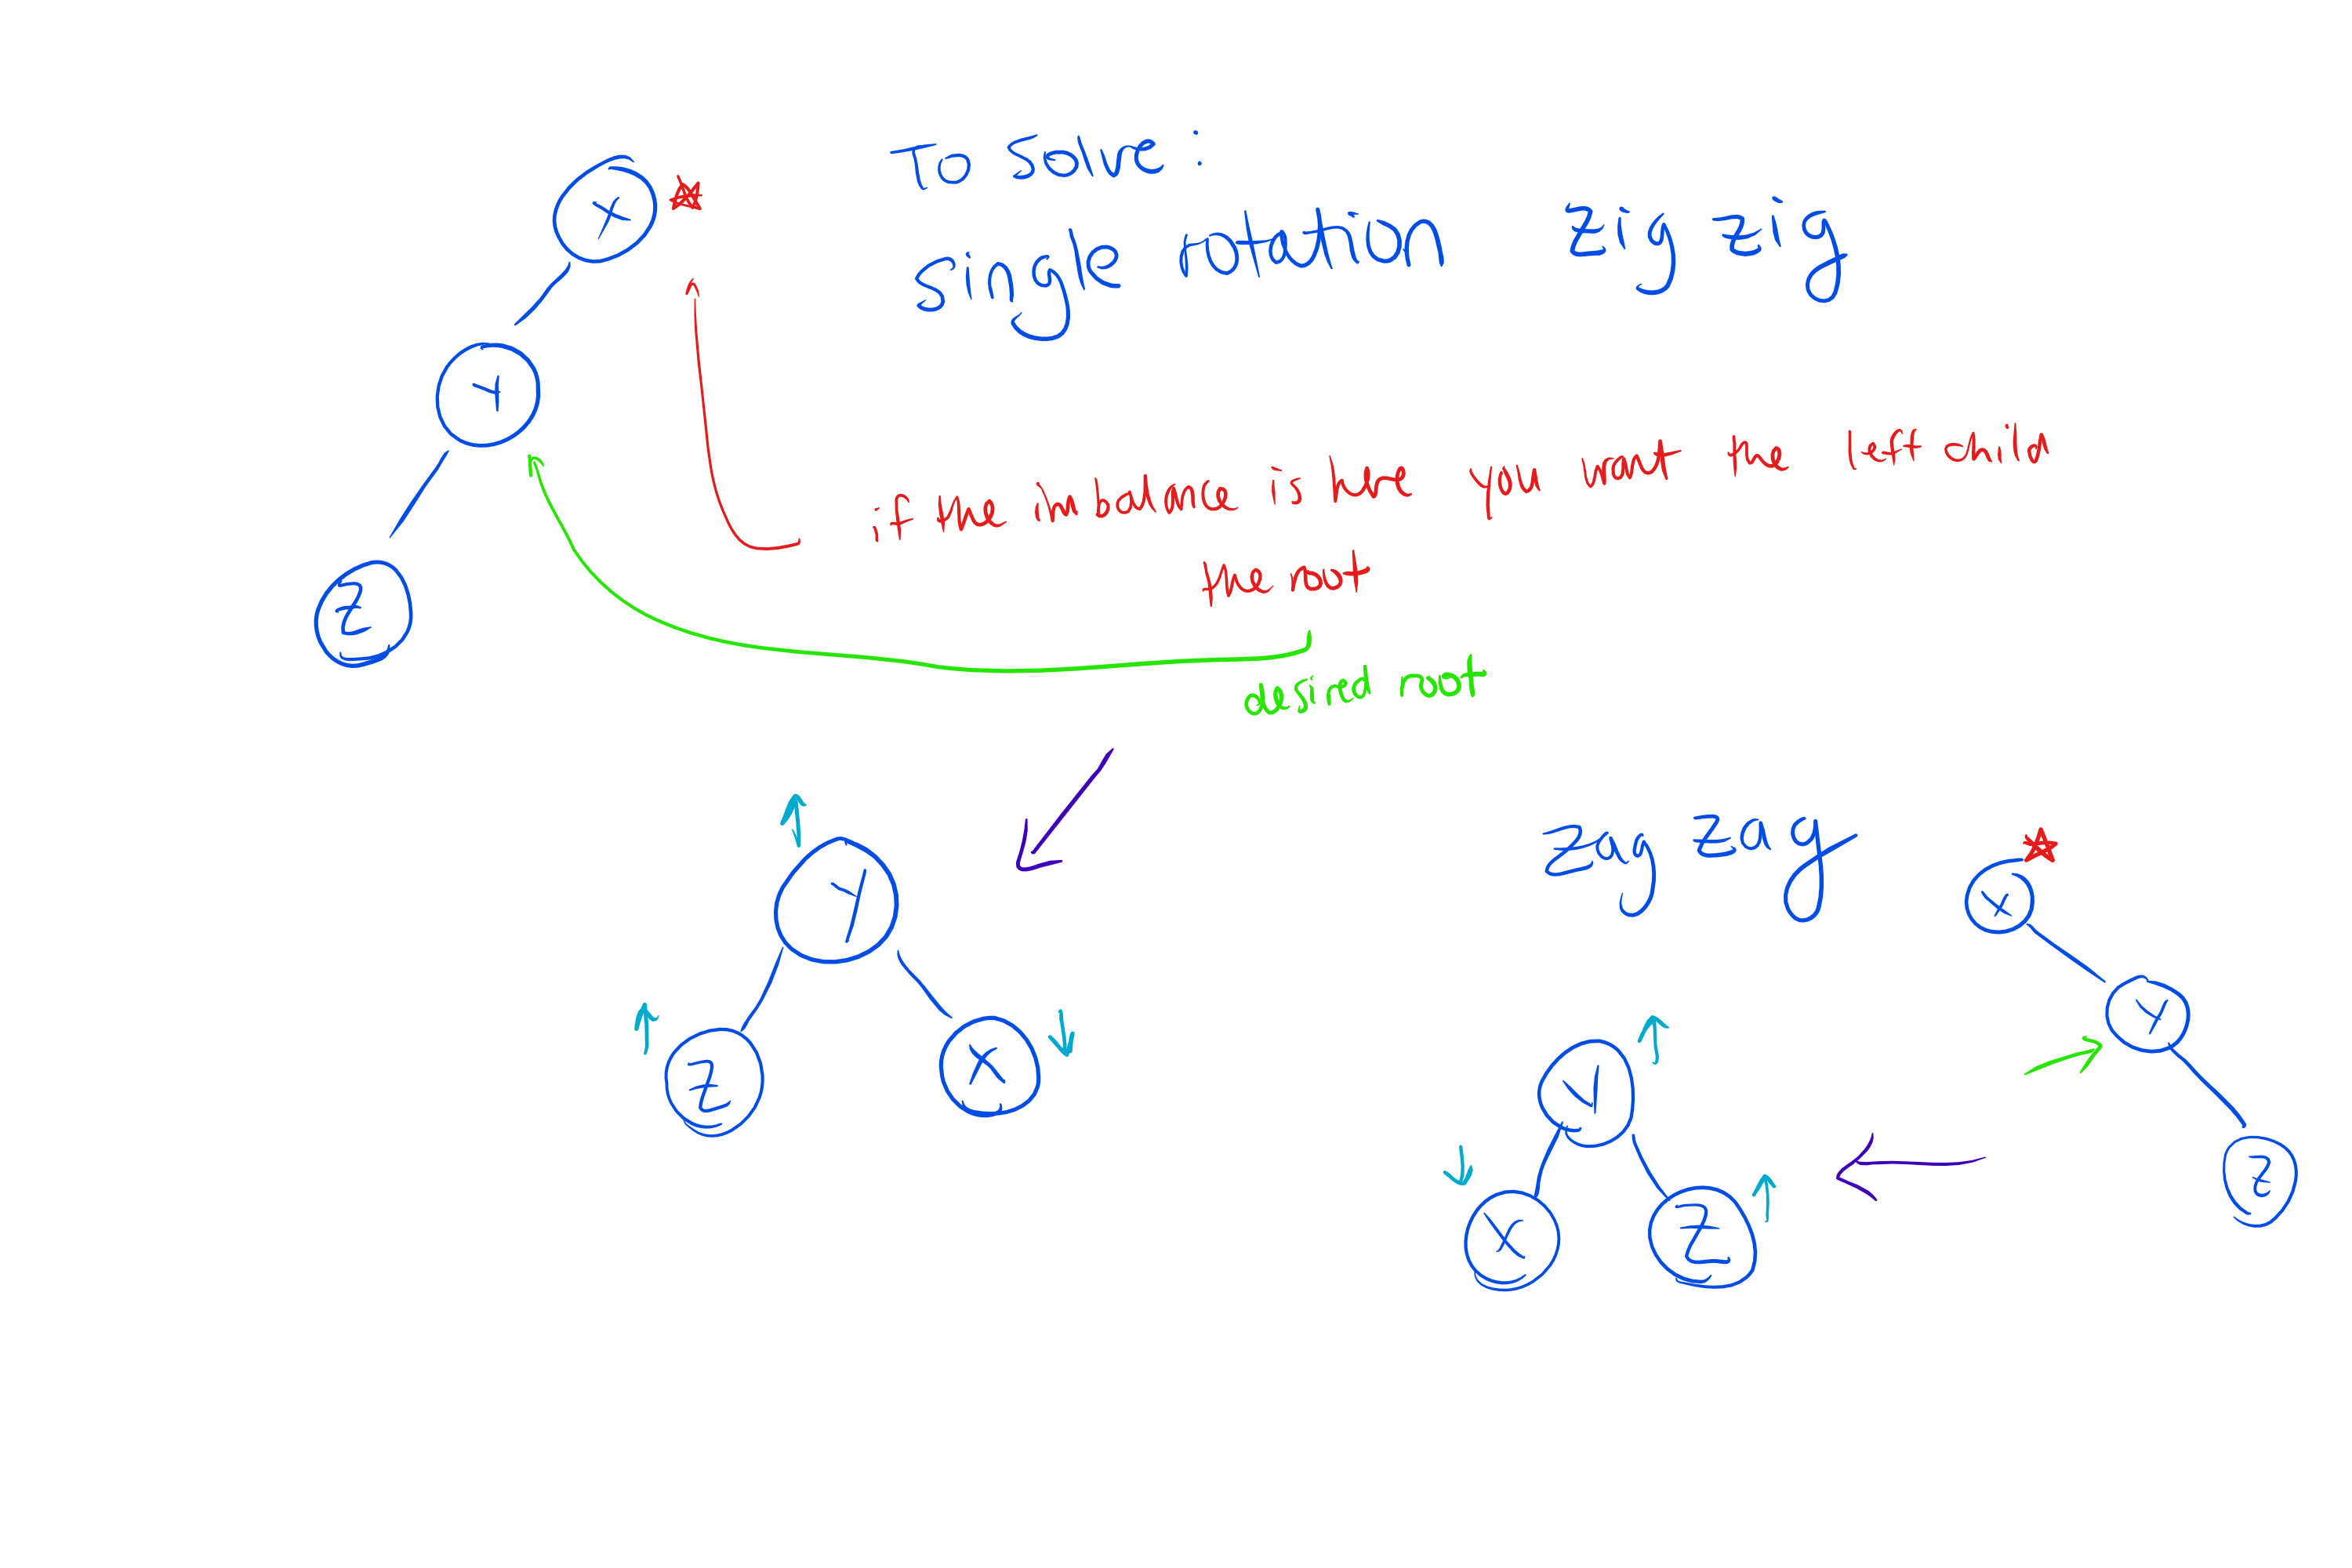 To Solve :
single rotation
zig zig
X
Y
Z
if the inbalance is here you want the left child
the root
desired root
Y
Z
X
zag zag
X
Y
Z
Y
X
Z